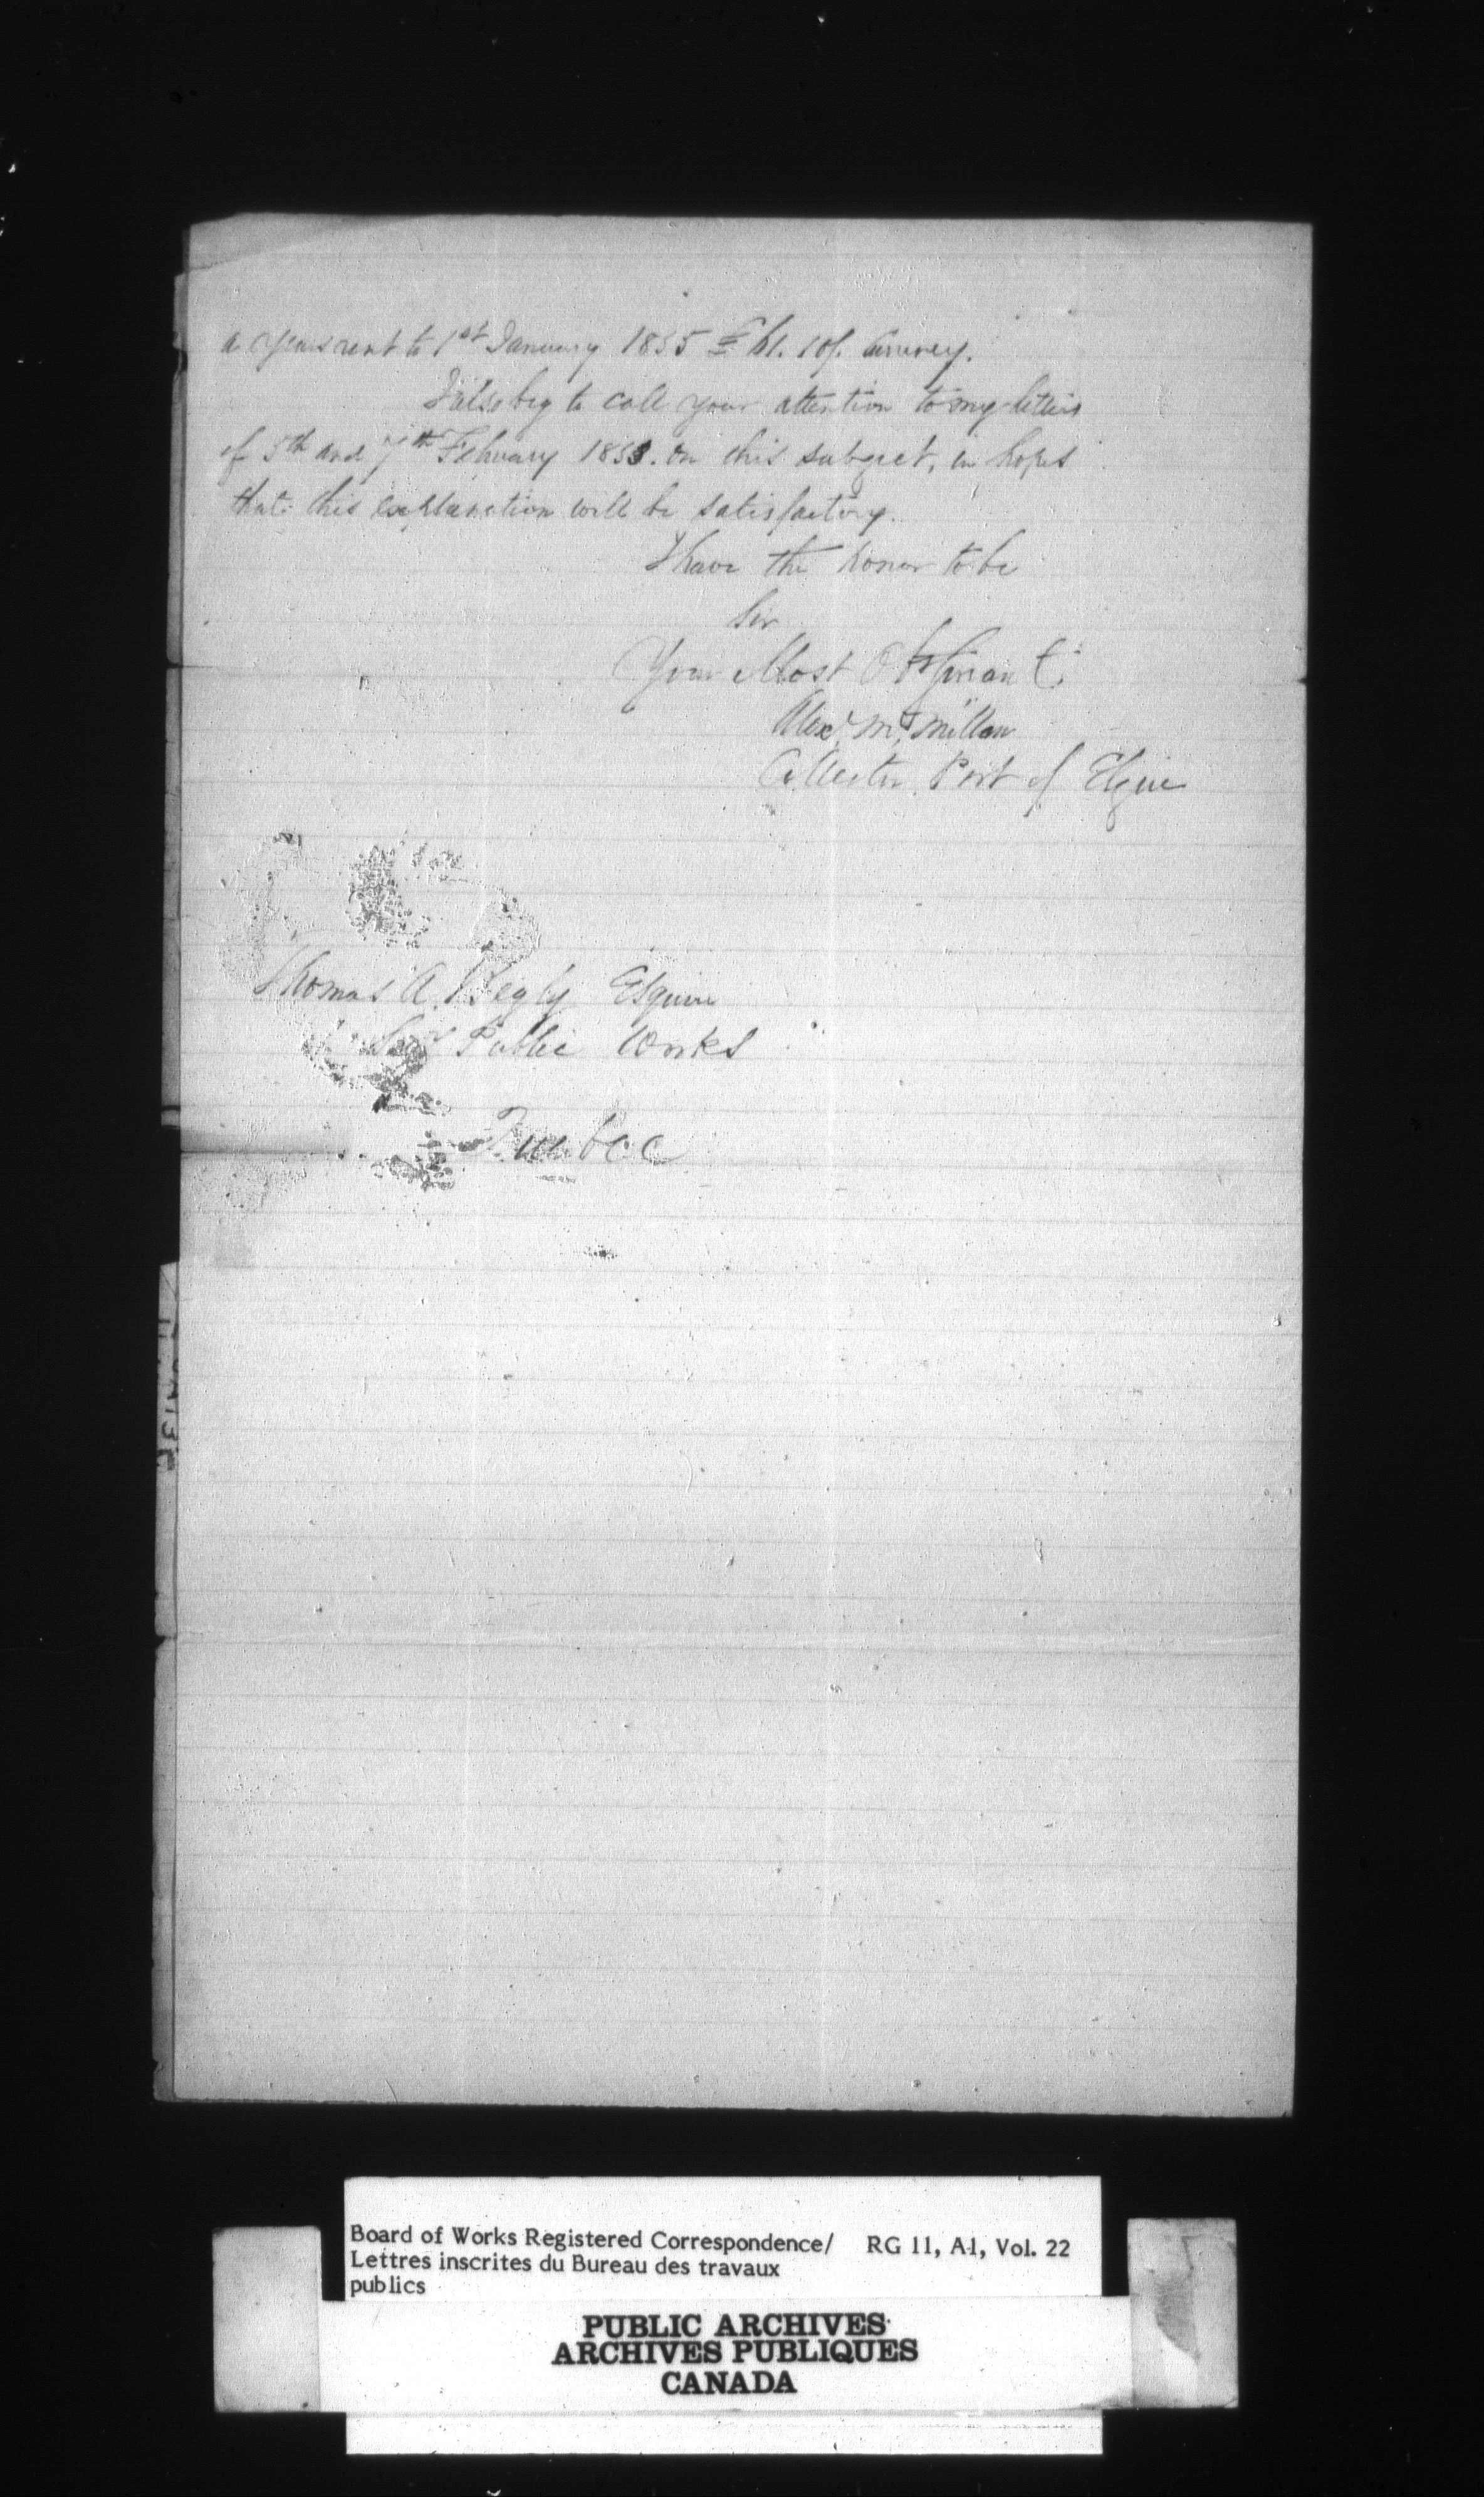 a years rent to 1st January 1855 £ 10/. Currency.
I also beg to call your attention to my letters
of 5th and 7th February 1853. on this subject, in hopes
that this explanation will be satisfactory.
I have the honor to be
Sir
Your Most Obt Servant
Alexr McMillan
Collector Port of Elgin
Thomas A. Begly Esquire
Secy Public Works
Quebec
Board of Works Registered Correspondence/ RG 11, A-1, Vol. 22
Lettres inscrites du Bureau des travaux
publics
PUBLIC ARCHIVES
ARCHIVES PUBLIQUES
CANADA